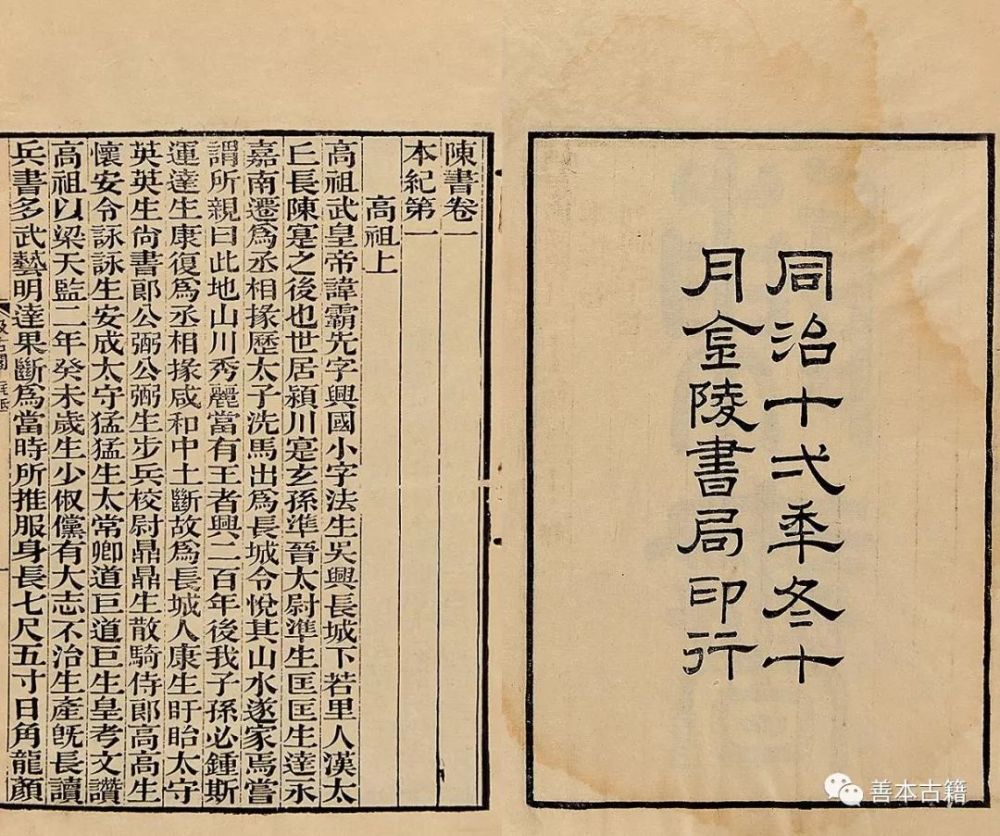 同治十弌秊冬十
月金陵書局印行
陳書卷一
本紀第一
高祖上
高祖武皇帝諱霸先字興國小字法生吳興長城下若里人漢太
丘長陳寔之後也世居潁川寔玄孫準晉太尉準生匡匡生達永
嘉南遷爲丞相掾歷太子洗馬出爲長城令悅其山水遂家焉嘗
謂所親曰此地山川秀麗當有王者興二百年後我子孫必鍾斯
運達生康復爲丞相掾咸和中土斷故爲長城人康生盱眙太守
英英生尚書郎公弼公弼生步兵校尉鼎鼎生散騎侍郎高高生
懷安令詠詠生安成太守猛猛生太常卿道巨道巨生皇考文讚
高祖以梁天監二年癸未歲生少俶儻有大志不治生產旣長讀
兵書多武藝明達果斷爲當時所推服身長七尺五寸日角龍顏
善本古籍